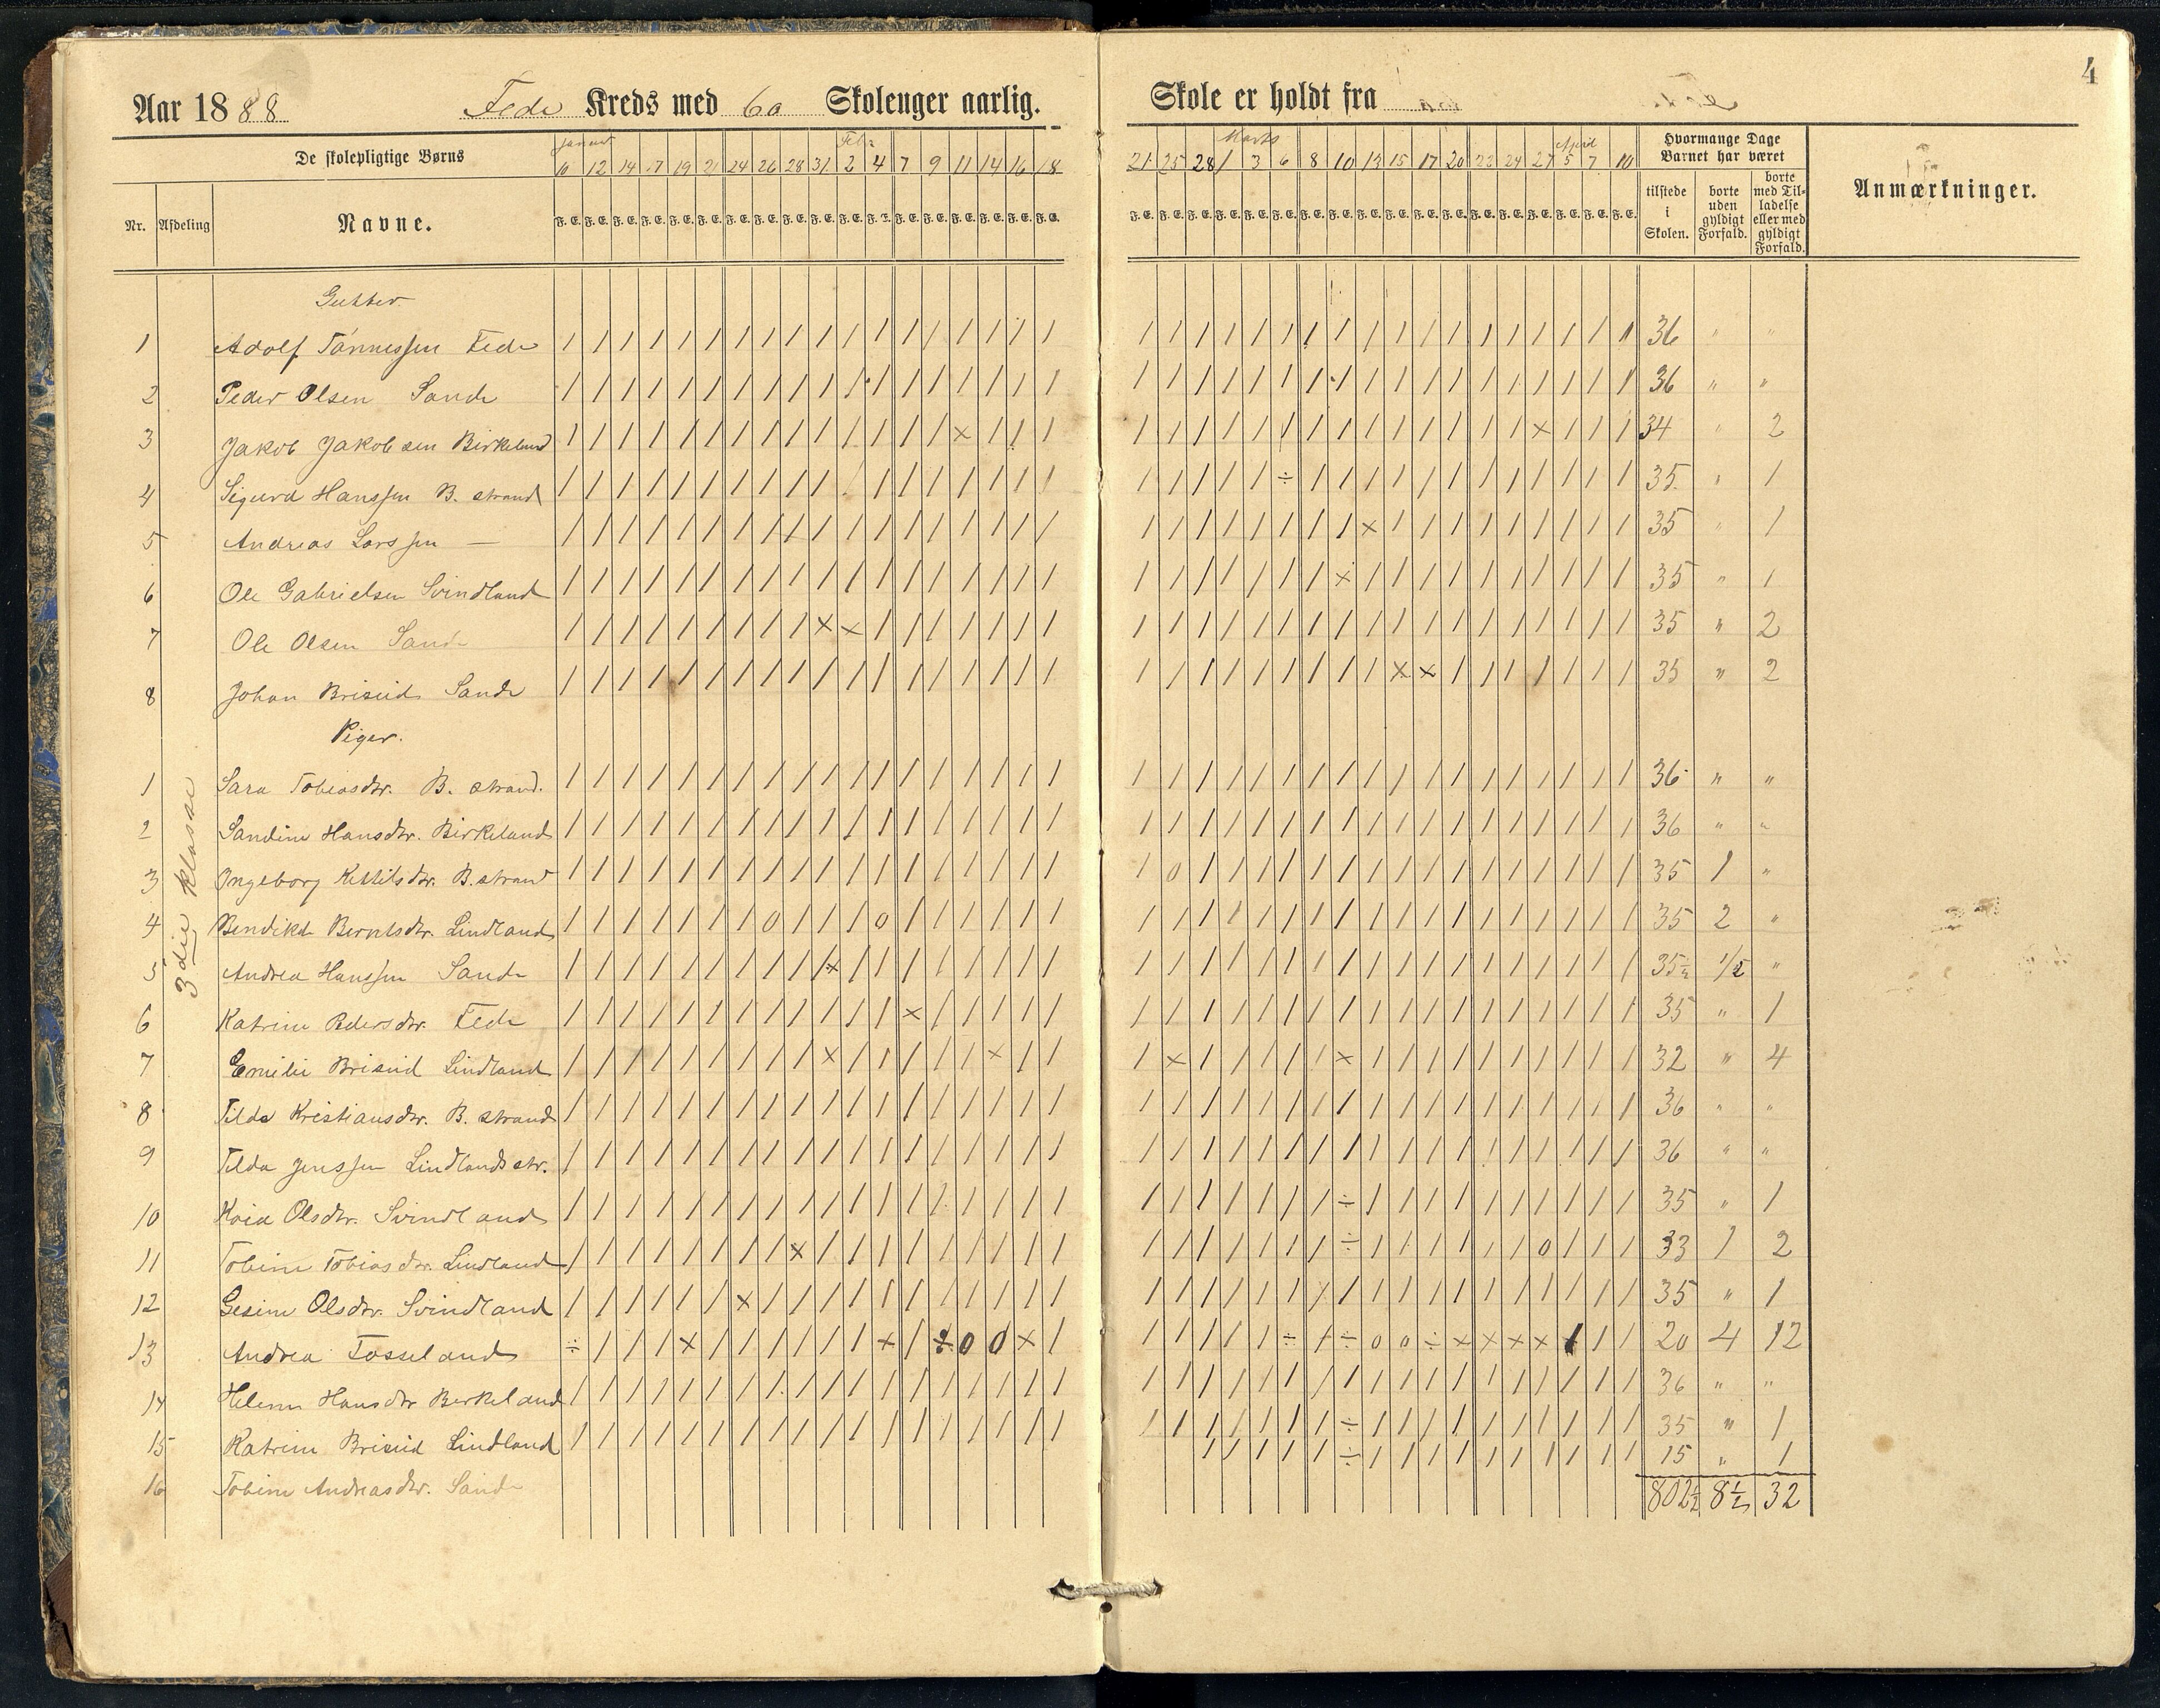 4
Aar 1888 Fede Kreds med 6a Skoleuger aarlig. Skole er holdt fra
De skolepligtige Børns
Januar Febr. Marts April
10 12 14 17 19 21 24 26 28 31 2 4 7 9 11 14 16 18 21 25 28 1 3 6 8 10 13 15 17 20 22 24 27 5 7 10
Hvormange Dage Barnet har været
Anmærkninger.
Nr. Afdeling Navne.
F. E. F. E. F. E. F. E. F. E. F. E. F. E. F. E. F. E. F. E. F. E. F. E. F. E. F. E. F. E. F. E. F. E. F. E.
F. E. F. E. F. E. F. E. F. E. F. E. F. E. F. E. F. E. F. E. F. E. F. E. F. E. F. E. F. E. F. E. F. E. F. E.
tilstede i Skolen.
borte uden gyldigt Forfald.
borte med Tilladelse eller med gyldigt Forfald.
Gutter.
1 Adolf Tønnessen Fede / / / / / / / / / / / / / / / / / / / / / / / / / / / / / / / / / / / / 36 " "
2 Peder Olsen Sande / / / / / / / / / / / / / / / / / / / / / / / / / / / / / / / / / / / / 36 " "
3 Jakob Jakobsen Birkeland / / / / / / / / / / / / / / × / / / / / / / / / / / / / / / / / × / / / 34 " 2
4 Sigurd Hanssen B. strand / / / / / / / / / / / / / / / / / / / / / / / ÷ / / / / / / / / / / / / 35 " 1
5 Andreas Larssen — / / / / / / / / / / / / / / / / / / / / / / / / / / × / / / / / / / / / 35 " 1
6 Ole Gabrielsen Svindland / / / / / / / / / / / / / / / / / / / / / / / / / × / / / / / / / / / / 35 " 1
7 Ole Olsen Sande / / / / / / / / / × × / / / / / / / / / / / / / / / / / / / / / / / / / 35 " 2
8 Johan Briseid Sande / / / / / / / / / / / / / / / / / / / / / / / / / / / × × / / / / / / / 35 " 2
Piger.
3die klasse
1 Sara Tobiasdtr. B. strand. / / / / / / / / / / / / / / / / / / / / / / / / / / / / / / / / / / / / 36 " "
2 Sandine Hansdtr. Birkeland / / / / / / / / / / / / / / / / / / / / / / / / / / / / / / / / / / / / 36 " "
3 Ingeborg Kittilsdtr. B. strand / / / / / / / / / / / / / / / / / / / 0 / / / / / / / / / / / / / / / / 35 1 "
4 Bendikte Berntsdtr. Lindland / / / / / / / 0 / / / 0 / / / / / / / / / / / / / / / / / / / / / / / / 35 2 "
5 Andrea Hanssen Sande / / / / / / / / / /× / / / / / / / / / / / / / / / / / / / / / / / / / / 35½ 1/2 "
6 Katrine Pedersdtr. Fede / / / / / / / / / / / / × / / / / / / / / / / / / / / / / / / / / / / / 35 " 1
7 Emilie Briseid Lindland / / / / / / / / / × / / / / / × / / / × / / / / / × / / / / / / / / / / 32 " 4
8 Tilda Kristiansdtr. B. strand / / / / / / / / / / / / / / / / / / / / / / / / / / / / / / / / / / / / 36 " "
9 Tilda Jenssen Lindlandsstr. / / / / / / / / / / / / / / / / / / / / / / / / / / / / / / / / / / / / 36 " "
10 Kaia Olsdtr. Svindland / / / / / / / / / / / / / / / / / / / / / / / / / ÷ / / / / / / / / / / 35 " 1
11 Tobine Tobiasdtr. Lindland / / / / / / / / × / / / / / / / / / / / / / / / / ÷ / / / / / / 0 / / / 33 1 2
12 Gesine Olsdtr. Svindland / / / / / / × / / / / / / / / / / / / / / / / / / / / / / / / / / / / / 35 " 1
13 Andrea Tosseland ÷ / / / × / / / / / / × / ÷ 0 0 × / / / / / / ÷ / ÷ 0 0 ÷ × × × × / / / 20 4 12
14 Helene Hansdtr Berkeland / / / / / / / / / / / / / / / / / / / / / / / / / / / / / / / / / / / / 36 " "
15 Katrine Briseid Lindland / / / / / / / / / / / / / / / / / / / / / / / / / ÷ / / / / / / / / / / 35 " 1
16 Tobine Andreasdtr. Sande / / / / ÷ / / / / / / / / / / 15 " 1
802½ 8½ 32